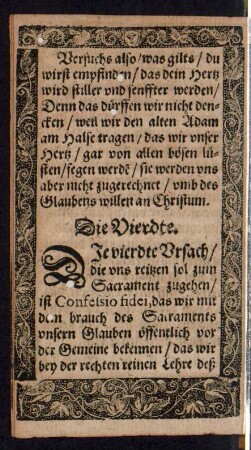 Versuchs also/was gilts/du
wirst empfinden/das dein Hertz
wird stiller vnd senffter werden/
Denn das dürffen wir nicht den-
cken/weil wir den alten Adam
am Halse tragen/das wir vnser
Hertz/gar von allen bösen lü-
sten/fegen werdē/sie werden vns
aber nicht zugerechnet/vmb des
Glaubens willen an Christum.
Die Vierdte.
DJe vierdte Vrsach/
die vns reitzen sol zum
Sacrament zugehen/
ist Confessio fidei,das wir mit
dem brauch des Sacraments
vnsern Glauben öffentlich vor
der Gemeine bekennen/das wir
bey der rechten reinen Lehre deß